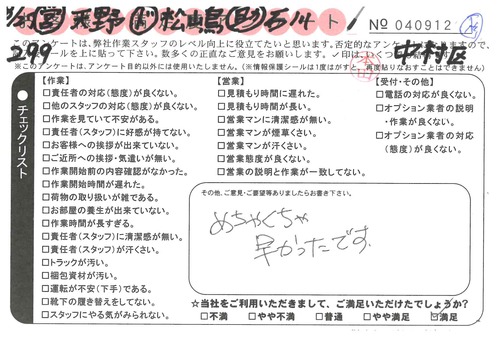 天野 松嶋 石川 ト
№ 040912
299
中村店
このアンケートは、弊社作業スタッフのレベル向上に役立てたいと思います。否定的なアン
ールを上に貼って下さい。数多くの正直なご意見をお願いします。✓印は、いくつ
※このアンケートは、アンケート目的以外には使用いたしません。（情報保護シールは1度はがすと、再度貼りなおすことはできません）
チェックリスト
【作業】
□責任者の対応(態度)が良くない。
□他のスタッフの対応(態度)が良くない。
□作業を見ていて不安がある。
□責任者(スタッフ)に好感が持てない。
□お客様への挨拶が出来ていない。
□ご近所への挨拶・気遣いが無い。
□作業開始前の内容確認がなかった。
□作業開始時間が遅れた。
□荷物の取り扱いが雑である。
□お部屋の養生が出来ていない。
□作業時間が長すぎる。
□責任者(スタッフ)に清潔感が無い。
□責任者(スタッフ)が汗くさい。
□トラックが汚い。
□梱包資材が汚い。
□運転が不安(下手)である。
□靴下の履き替えをしてない。
□スタッフにやる気がみられない。
【営業】
□見積もり時間に遅れた。
□見積もり時間が長い。
□営業マンに清潔感が無い。
□営業マンが煙草くさい。
□営業マンが汗くさい。
□営業態度が良くない。
□営業の説明と作業が一致してない。
【受付・その他】
□電話の対応が良くない。
□オプション業者の説明
・作業が良くない。
□オプション業者の対応
(態度)が良くない。
その他、ご意見・ご要望等ありましたらお書き下さい。
めちゃくちゃ
早かったです。
☆当社をご利用いただきまして、ご満足いただけたでしょうか？
□不満 □やや不満 □普通 □やや満足 ☑満足